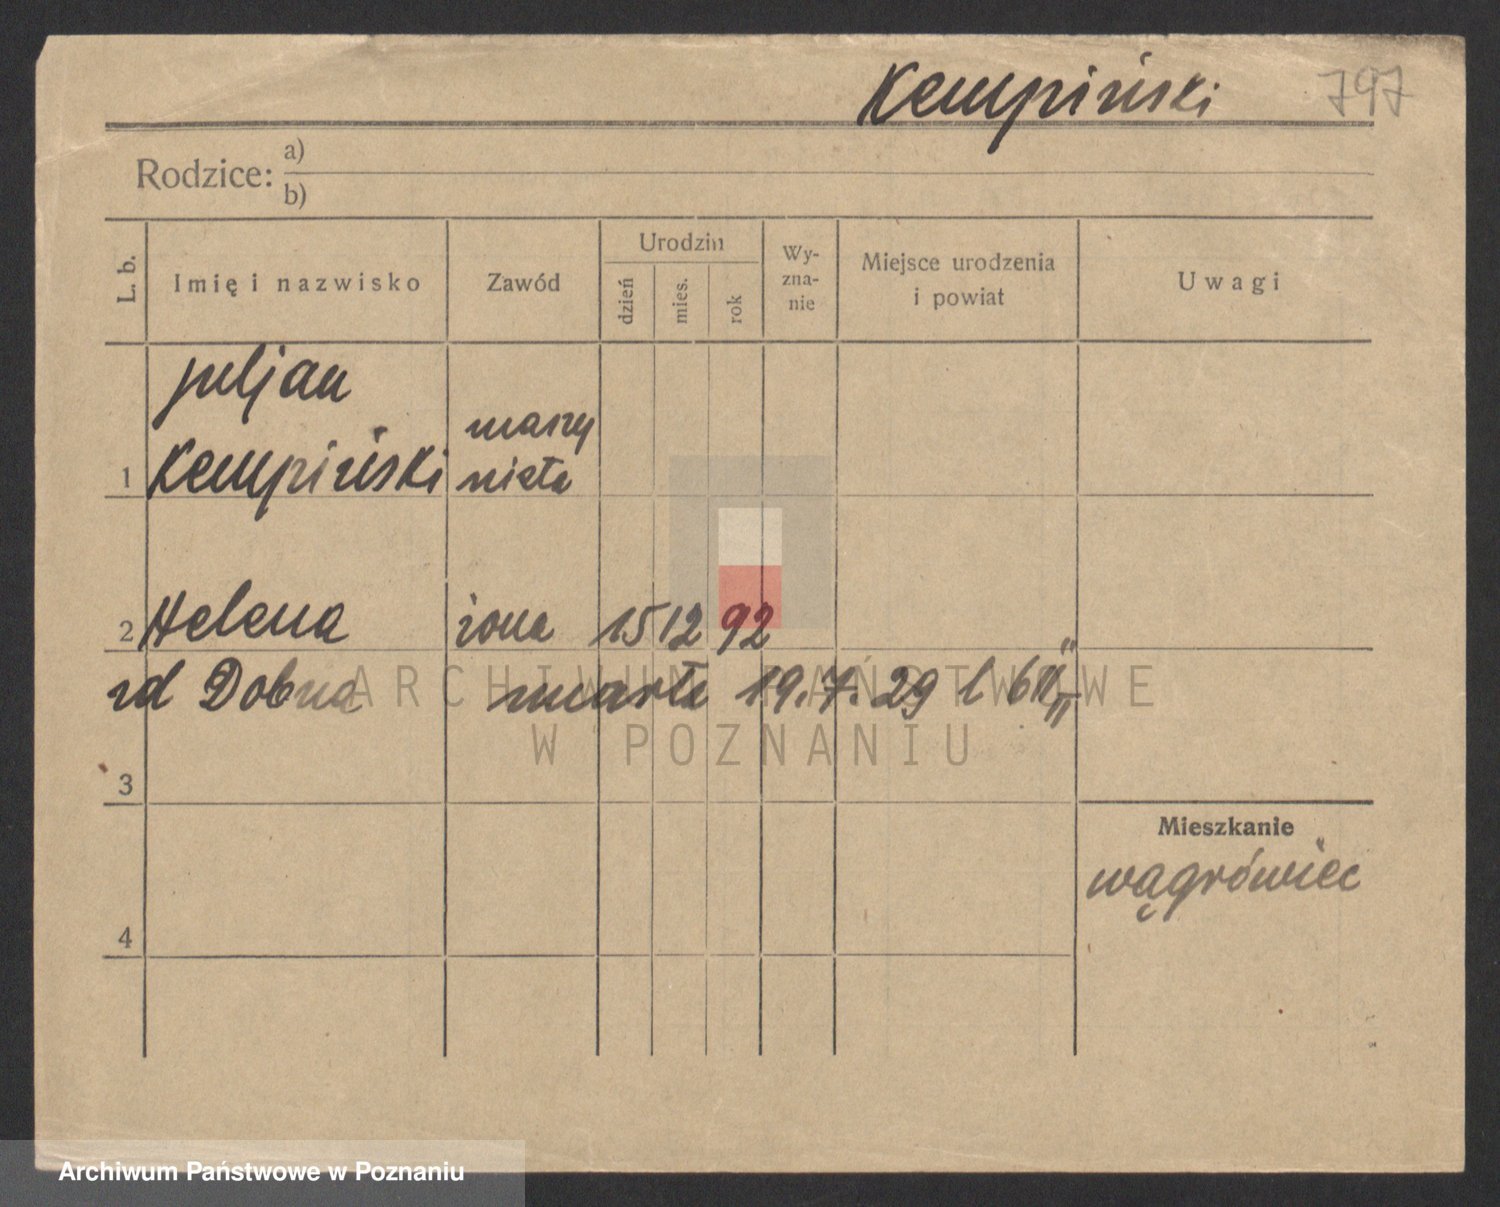 Kempiński 797
Rodzice: a)
b)
L. b. Imię i nazwisko Zawód Urodzin dzień mies. rok Wy-
zna-
nie Miejsce urodzenia
i powiat Uwagi
Juljan
Kempiński
maszy
nista
1
2 Helena żona 15 12 92
zd Dobna zmarła 19.7.29 l
3
Mieszkanie
Wągrówiec
4
ARCHIWUM PAŃSTWOWE
W POZNANIU
Archiwum Państwowe w Poznaniu